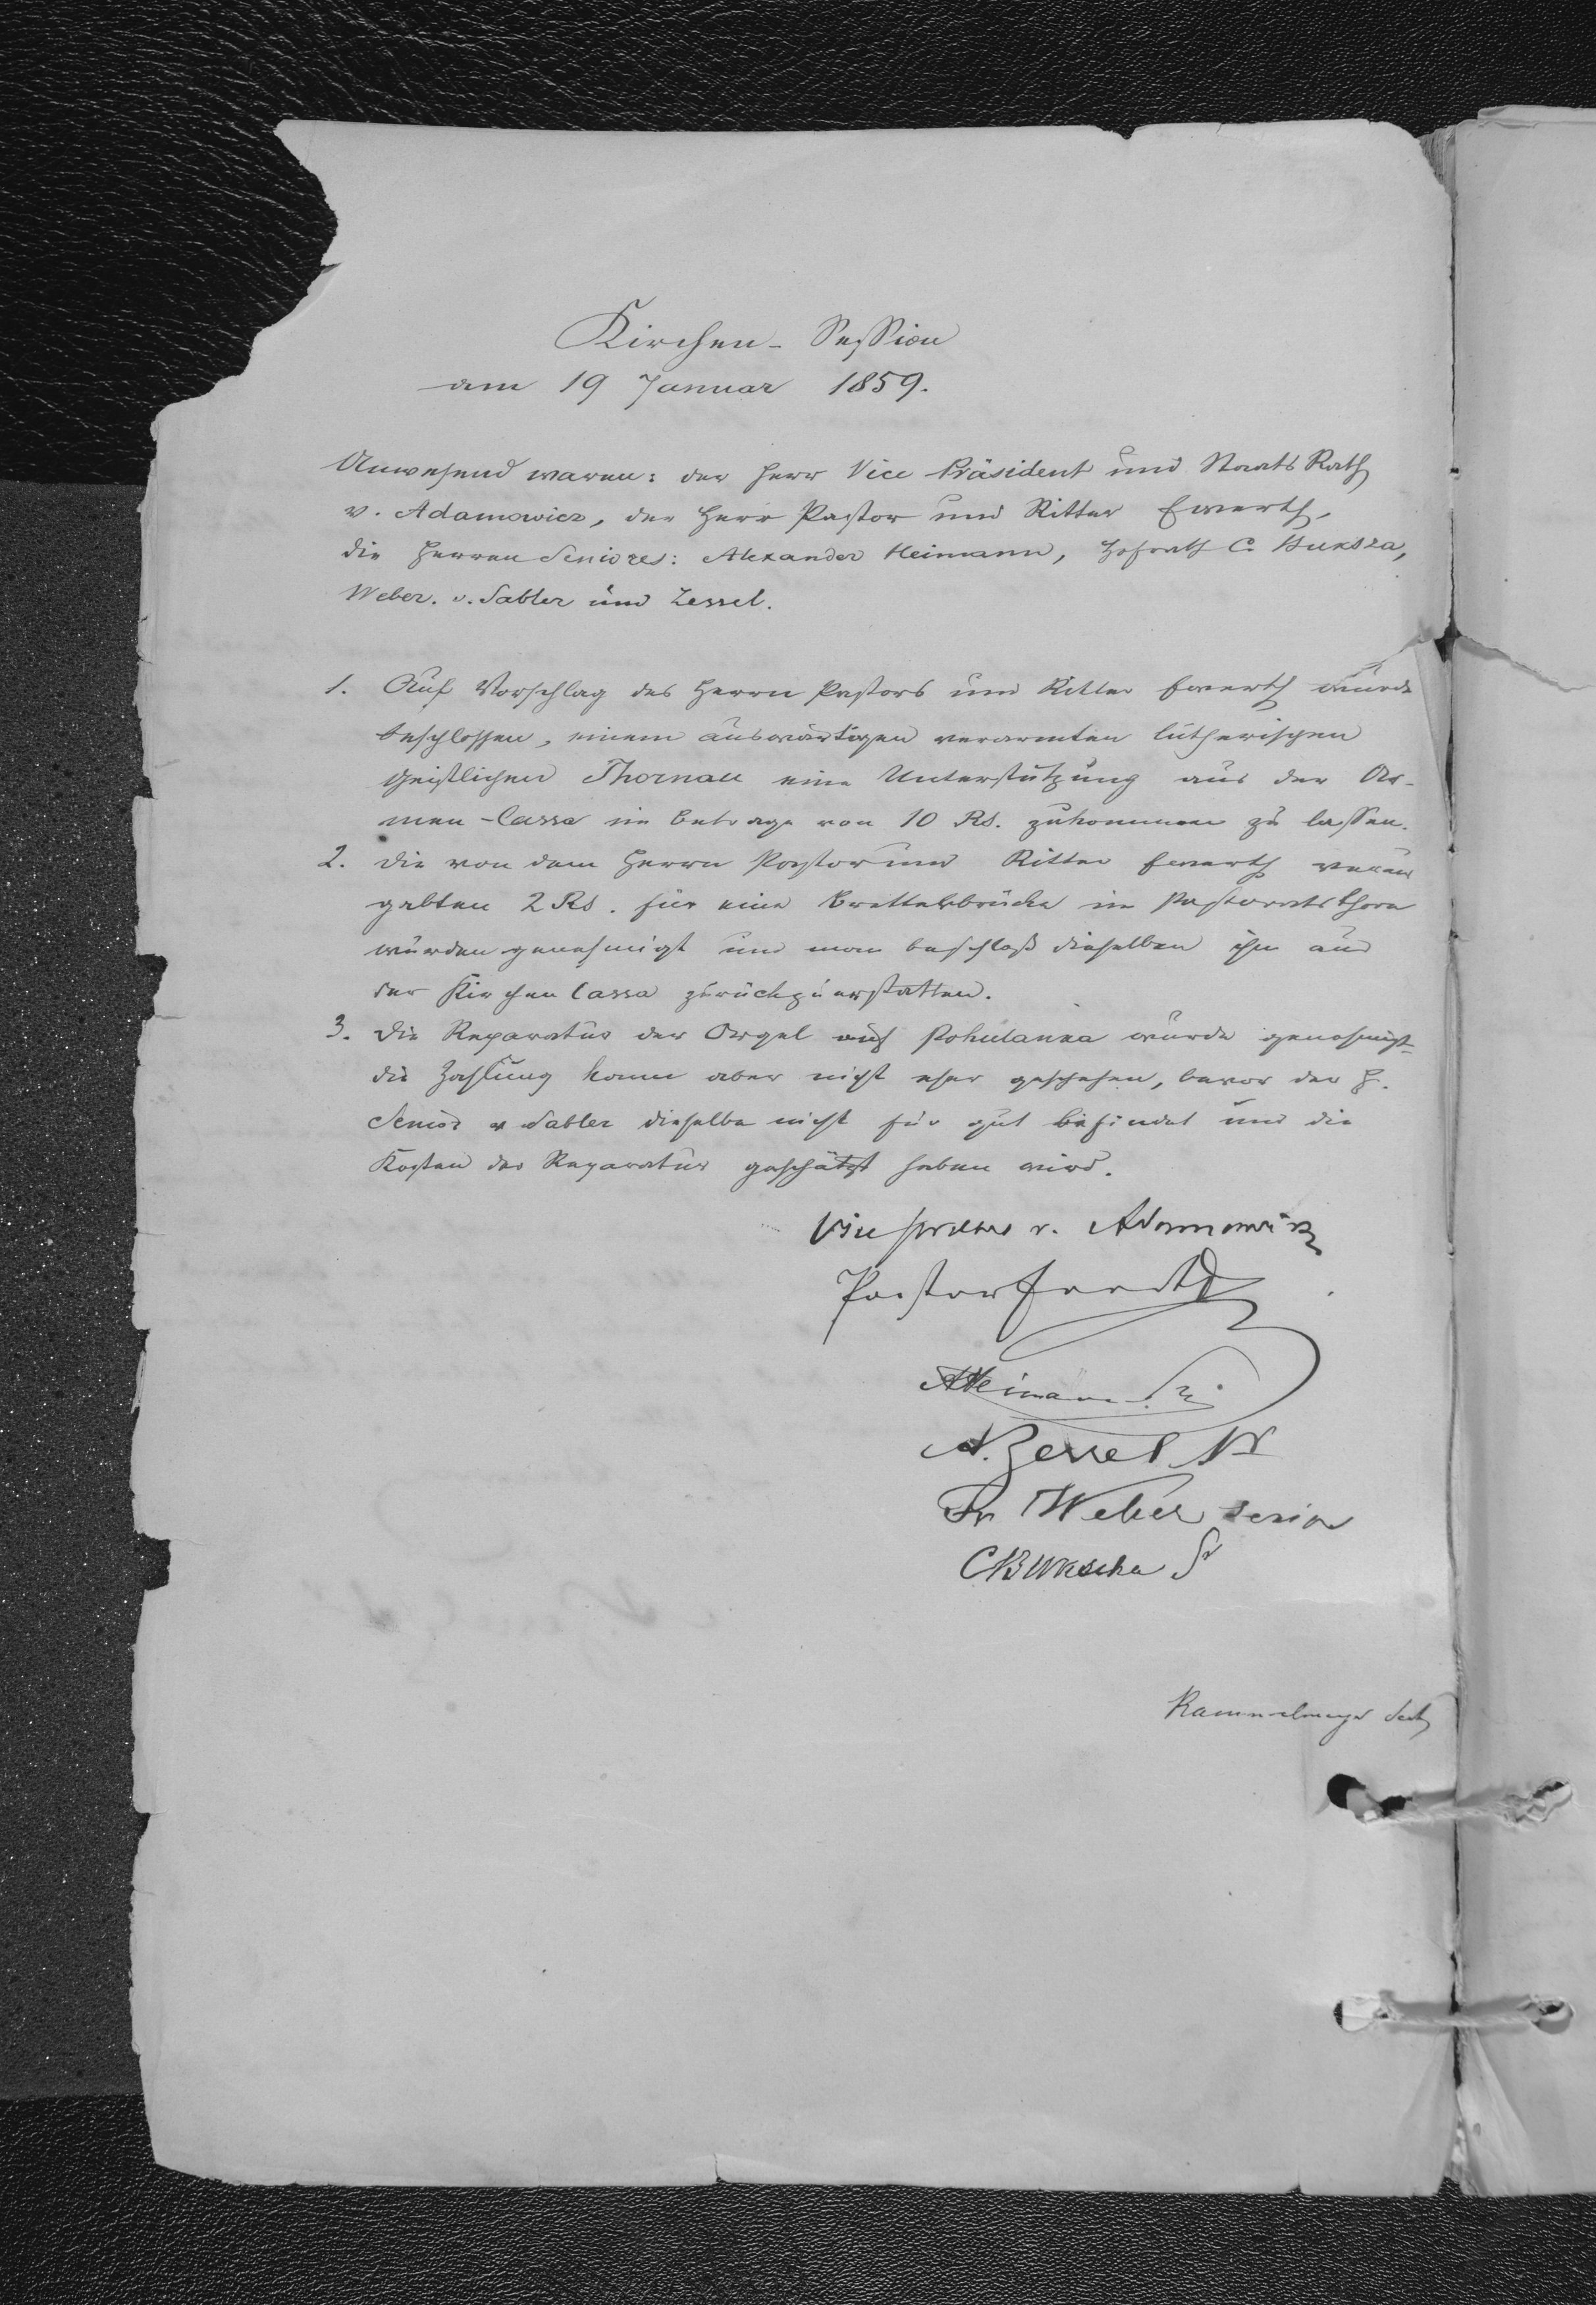 Kirchen-Session
am 19 Januar 1859.
Anwesend waren: der Herr Vice Präsident und Staats Rath
v. Adamowicz, der Herr Pastor und Ritter Ewerth,
die Herren Seniores: Alexander Heimann, Hofrath C. Buksza,
Weber. v. Sabler und Zessel.
1. Auf Vorschlag des Herrn Pastors und Ritter Ewerth wurde
beschlossen, einem auswärtigen verarmten lutherischen
Geistlichen Thornau eine Unterstützung aus der Ar-
men-Cassa im Betrage von 10 Rs. zukommen zu lassen.
2. Die von dem Herrn Pastor und Ritter Ewerth veraus
gabten 2 Rs. für eine Bretterbrücke im Pastoratsthore
wurden genehmigt und man beschloß dieselben ihm aus
der Kirchen Cassa zurückzuerstatten.
3. Die Reparatur der Orgel auf Pohulanka wurde genehmigt-
die Zahlung kann aber nicht eher geschehen, bevor der H.
Senior v Sabler dieselbe nicht für gut befindet und die
Kosten der Reparatur geschätzt haben wird.
v. Adamowicz
Pastor Ewerth
AHeimann Sr.
A. Zessel Sr
Fr Weber Senior
CBukscha Sr
Rammelmeyer Secr